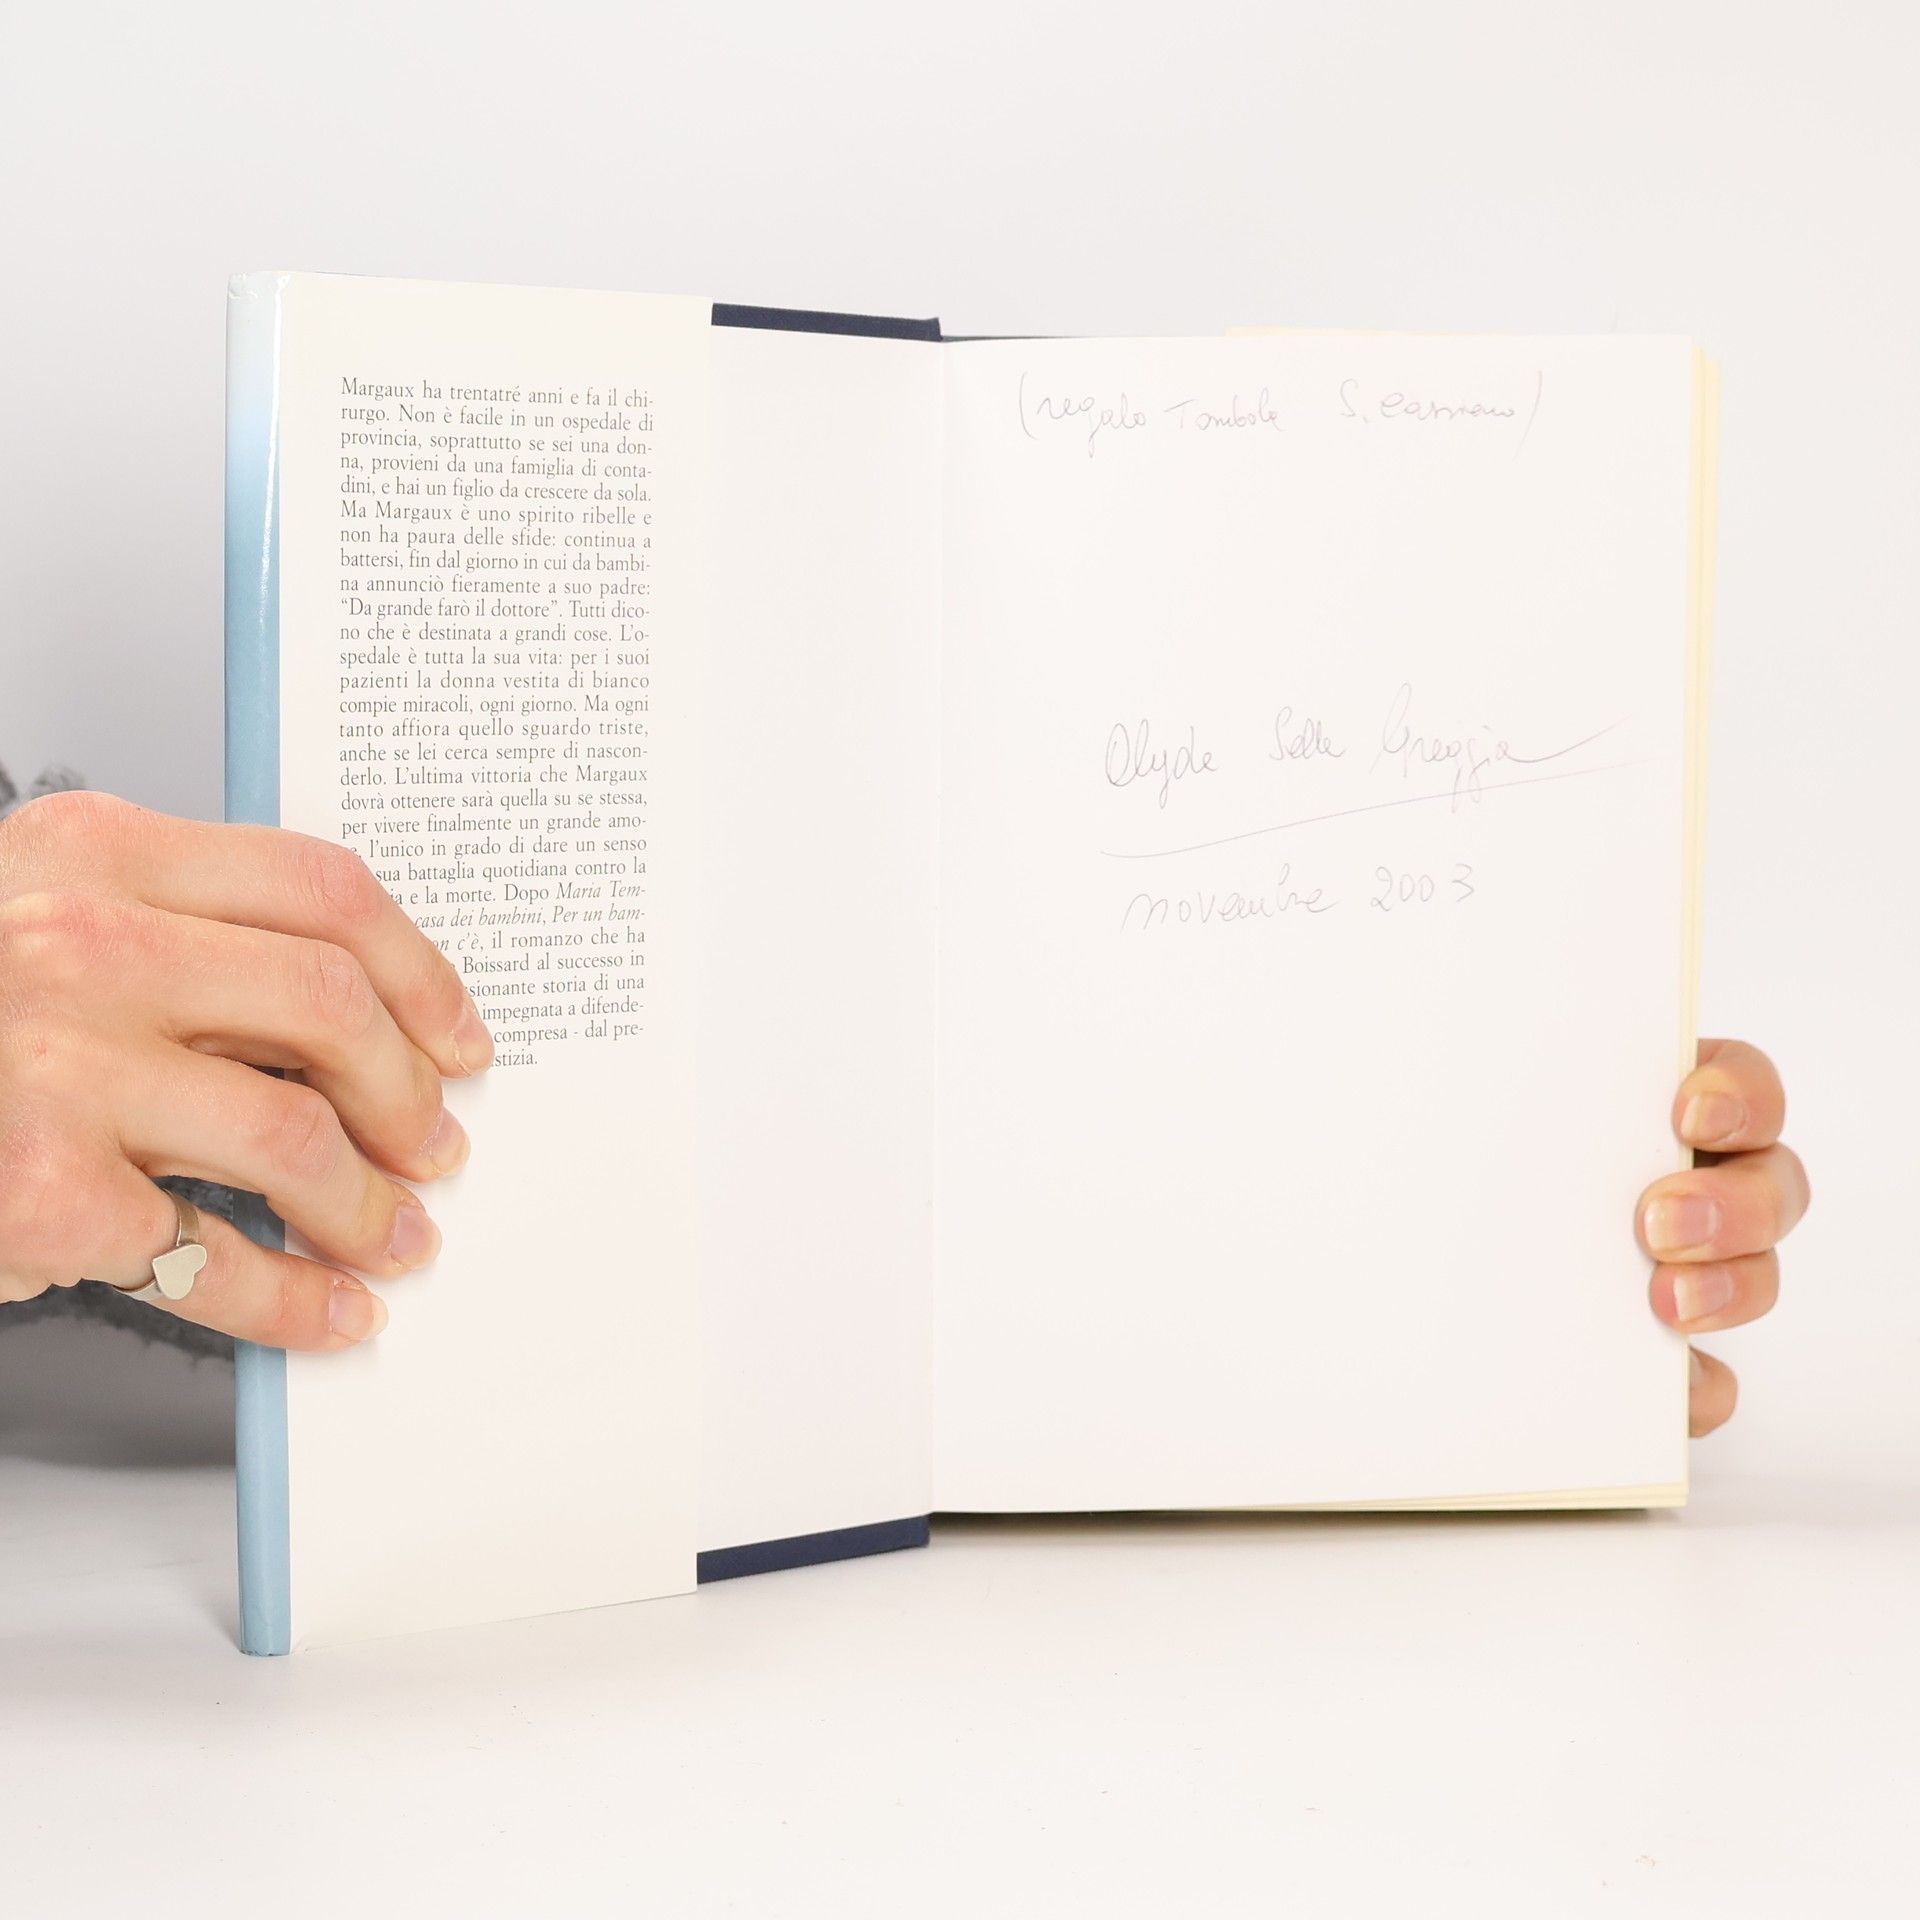 Margaux ha trentatré anni e fa il chi-
rurgo. Non è facile in un ospedale di
provincia, soprattutto se sei una don-
na, provieni da una famiglia di conta-
dini, e hai un figlio da crescere da sola.
Ma Margaux è uno spirito ribelle e
non ha paura delle sfide: continua a
battersi, fin dal giorno in cui da bambi-
na annunciò fieramente a suo padre:
“Da grande farò il dottore”. Tutti dico-
no che è destinata a grandi cose. L’o-
spedale è tutta la sua vita: per i suoi
pazienti la donna vestita di bianco
compie miracoli, ogni giorno. Ma ogni
tanto affiora quello sguardo triste,
anche se lei cerca sempre di nascon-
derlo. L’ultima vittoria che Margaux
dovrà ottenere sarà quella su se stessa,
per vivere finalmente un grande amo-
l’unico in grado di dare un senso
sua battaglia quotidiana contro la
e la morte. Dopo Maria Tem-
casa dei bambini, Per un bam-
c’è, il romanzo che ha
Boissard al successo in
storia di una
impegnata a difende-
compresa - dal pre-
(regalo Tombola S. Cassiano)
novembre 2003